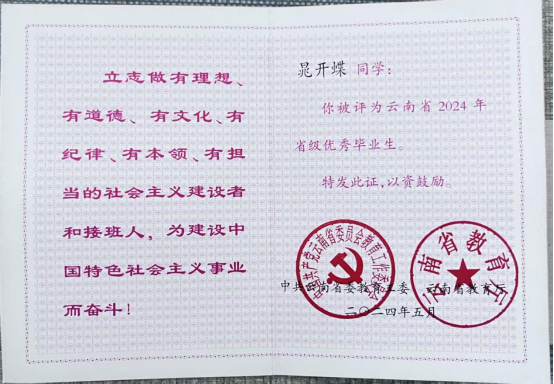 立志做有理想、
有道德、有文化、有
纪律、有本领、有担
当的社会主义建设者
和接班人，为建设中
国特色社会主义事业
而奋斗！
晁开蝶 同学：
你被评为云南省2024年
省级优秀毕业生。
特发此证，以资鼓励。
中国共产党云南省委员会教育工作委员会
云南省教育厅
中共云南省委教育工委 云南省教育厅
二〇二四年五月